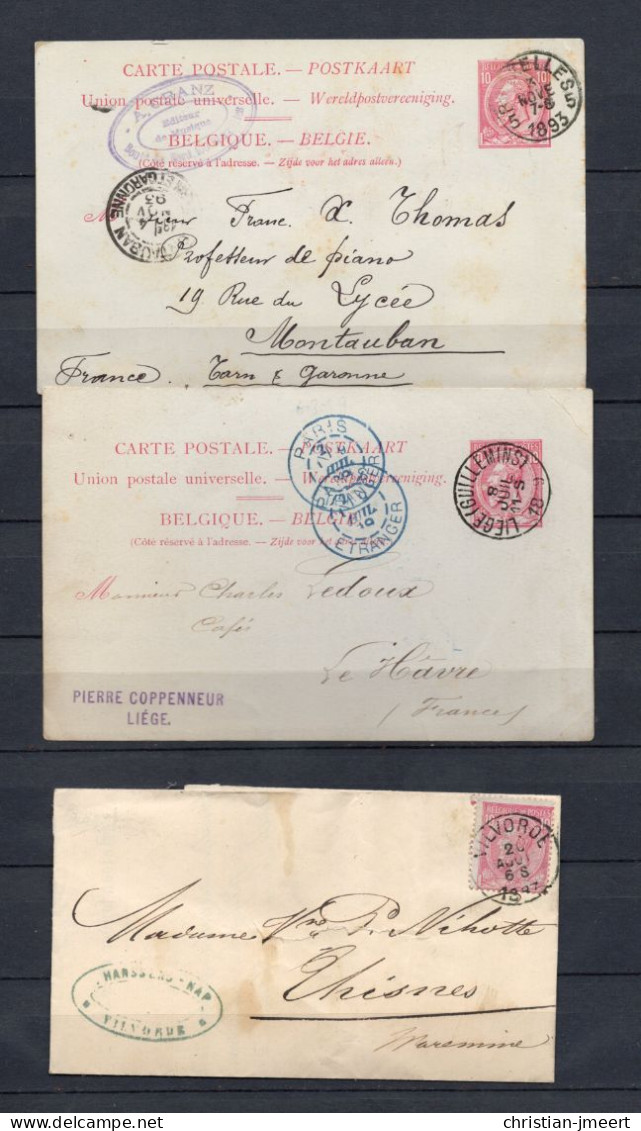 CARTE POSTALE. — POSTKAART
Union postale universelle. — Wereldpostvereeniging.
BELGIQUE. — BELGIE.
(Côté réservé à l'adresse. — Zijde voor het adres alleen.)
10
NOVE
7-8
1893
5
Editeur
de Musique
ET GARONNE
NOV
93
Franc. X. Thomas
Professeur de piano
19 Rue du Lycée
Montauban
France. Tarn & Garonne
CARTE POSTALE. — POSTKAART
Union postale universelle. —
BELGIQUE. —
(Côté réservé à l'adresse. — Zijde voor het
PARIS
ETRANGER
LIEGE (GUILLEMINS)
Monsieur Charles Ledoux
Cafés
Le Hâvre
(France)
PIERRE COPPENNEUR
LIÉGE.
VILVORDE
AOUT
6 S
Madame Vve P. Nihotte
Thisnes
Waremme
VILVORDE
delcampe.net
christian-jmeert